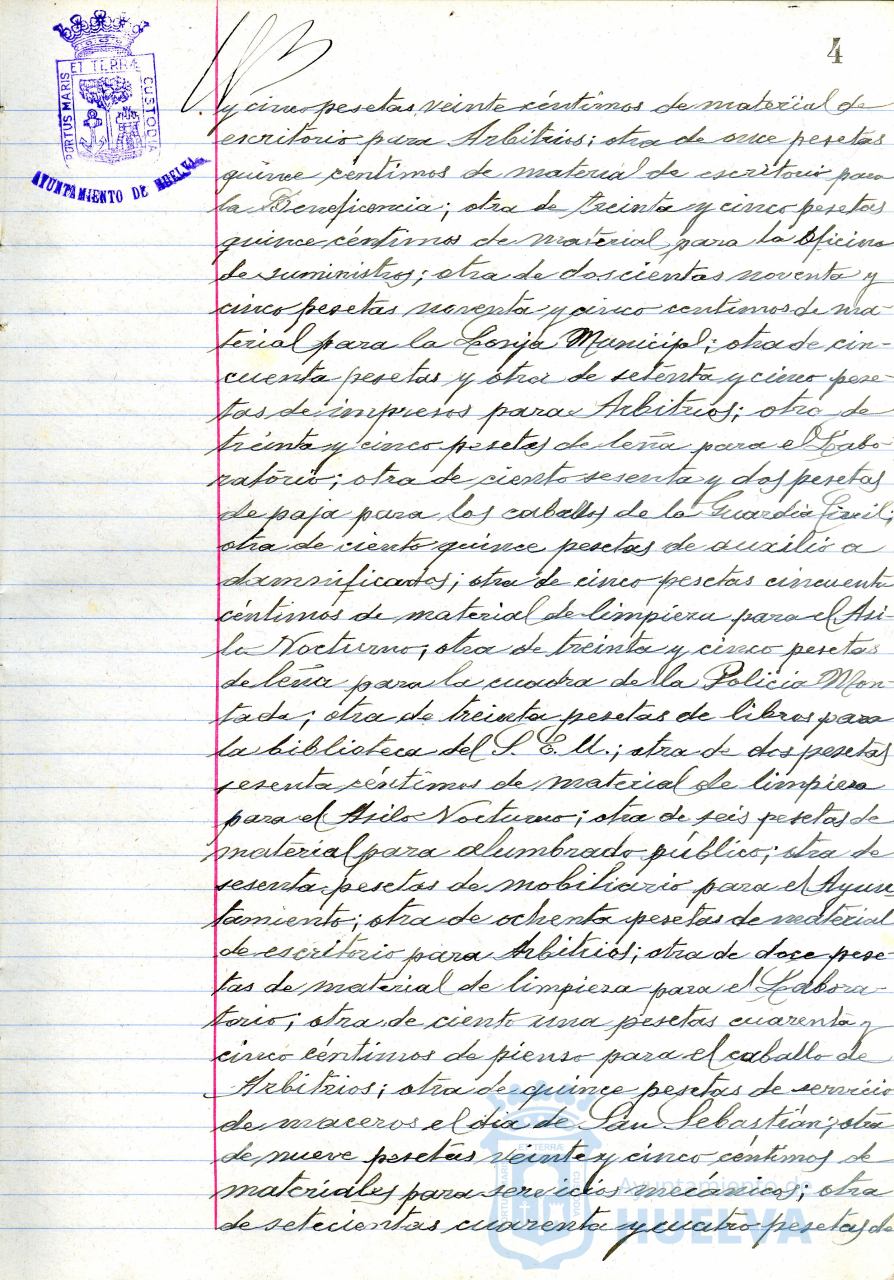 4
PORTUS MARIS ET TERRÆ CUSTODIA
AYUNTAMIENTO DE HUELVA
y cinco pesetas veinte céntimos de material de
escritorio para Arbitrios; otra de once pesetas
quince céntimos de material de escritorio para
la Beneficencia; otra de treinta y cinco pesetas
quince céntimos de material para la Oficina
de suministros; otra de doscientas noventa y
cinco pesetas noventa y cinco centimos de ma-
terial para la Lonja Municipal; otra de cin-
cuenta pesetas y otra de setenta y cinco pese-
tas de impresos para Arbitrios; otra de
treinta y cinco pesetas de leña para el Labo-
ratorio; otra de ciento sesenta y dos pesetas
de paja para los caballos de la Guardia Civil;
otra de ciento quince pesetas de auxilio a
damnificados; otra de cinco pesetas cincuenta
céntimos de material de limpieza para el Asi-
lo Nocturno; otra de treinta y cinco pesetas
de leña para la cuadra de la Policia Mon-
tada; otra de treinta pesetas de libros para
la biblioteca del S. E. U.; otra de dos pesetas
sesenta céntimos de material de limpieza
para el Asilo Nocturno; otra de seis pesetas de
material para alumbrado público; otra de
sesenta pesetas de mobiliario para el Ayun
tamiento; otra de ochenta pesetas de material
de escritorio para Arbitrios; otra de doce pese-
tas de material de limpieza para el Labora-
torio; otra de ciento una pesetas cuarenta y
cinco céntimos de pienso para el caballo de
Arbitrios; otra de quince pesetas de servicio
de maceros el dia de San Sebastián; otra
de nueve pesetas veinte y cinco céntimos de
materiales para servicios mecánicos; otra
de setecientas cuarenta y cuatro pesetas de
Ayuntamiento de
HUELVA